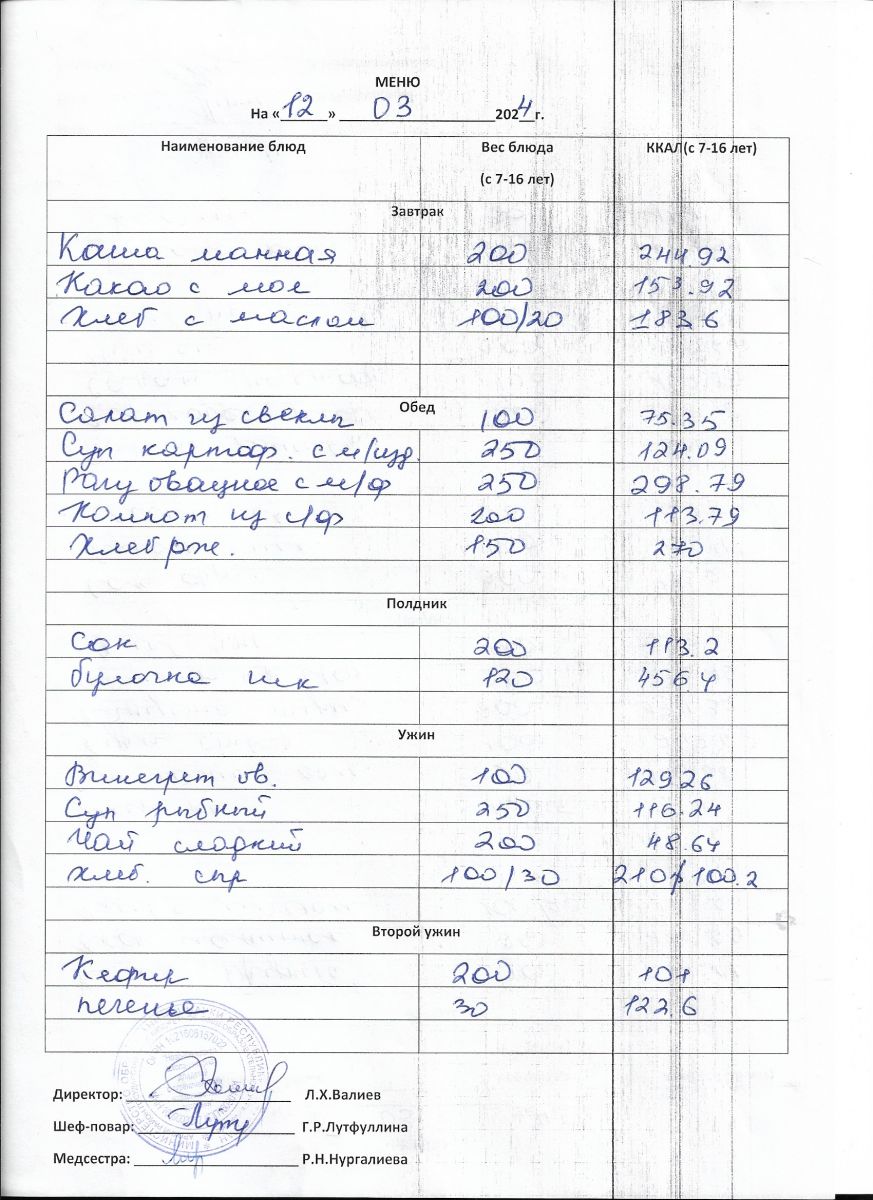 МЕНЮ
На «12» 03 2024 г.
Наименование блюд Вес блюда (с 7-16 лет) ККАЛ(с 7-16 лет)
Завтрак
Каша манная 200 244.92
Какао с мол 200 153.92
Хлеб с маслом 100/20 183.6
Обед
Салат из свеклы 100 75.35
Суп картоф. с м/изд. 250 124.09
Рагу овощное с м/ф 250 298.79
Компот из с/ф 200 113.79
Хлеб рж. 150 270
Полдник
Сок 200 113.2
булочка шк 120 456.4
Ужин
Винегрет ов. 100 129.26
Суп рыбный 250 116.24
Чай сладкий 200 48.64
хлеб. сыр 100/30 210/100.2
Второй ужин
Кефир 200 101
печенье 30 122.6
Директор: Л.Х.Валиев
Шеф-повар: Г.Р.Лутфуллина
Медсестра: Р.Н.Нургалиева